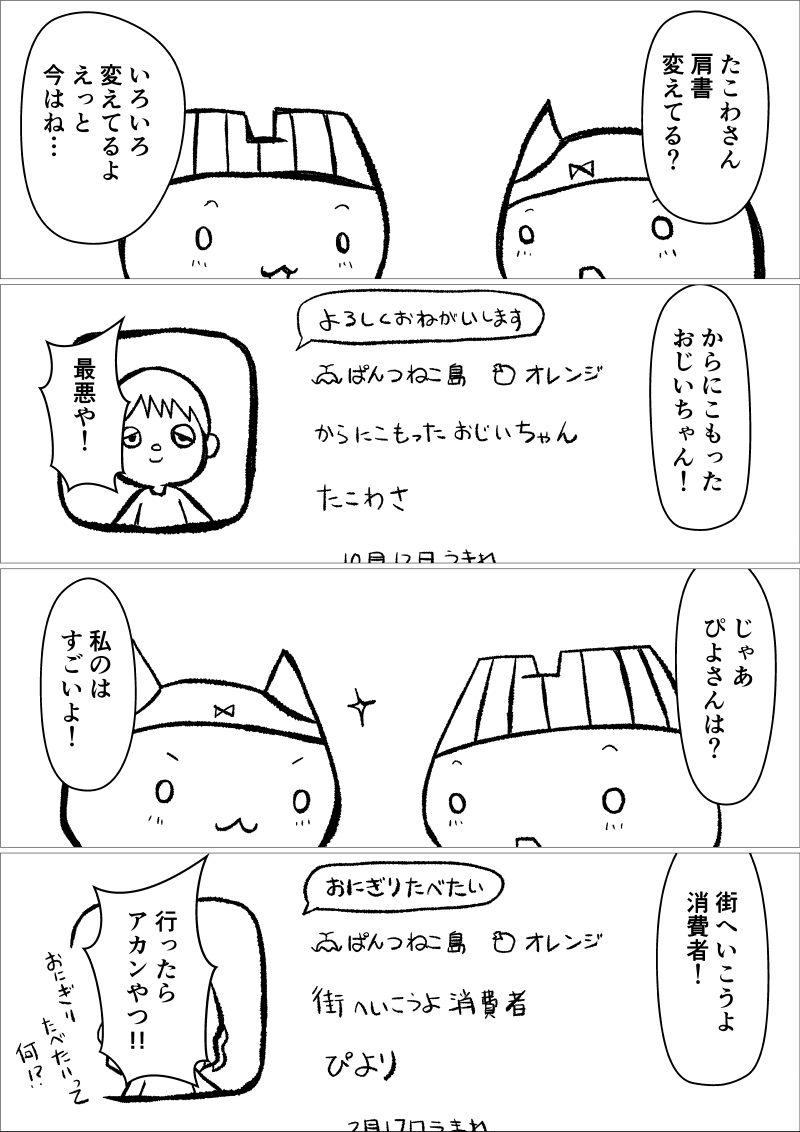 たこわさん
肩書
変えてる?
いろいろ
変えてるよ
えっと
今はね…
からにこもった
おじいちゃん!
よろしくおねがいします
ぱんつねこ島 オレンジ
からにこもったおじいちゃん
たこわさ
10月12日うまれ
最悪や!
じゃあ
ぴよさんは?
私のは
すごいよ!
街へいこうよ
消費者!
おにぎりたべたい
ぱんつねこ島 オレンジ
街へいこうよ消費者
ぴより
2月17日うまれ
行ったら
アカンやつ!!
おにぎり
たべたいって
何!?